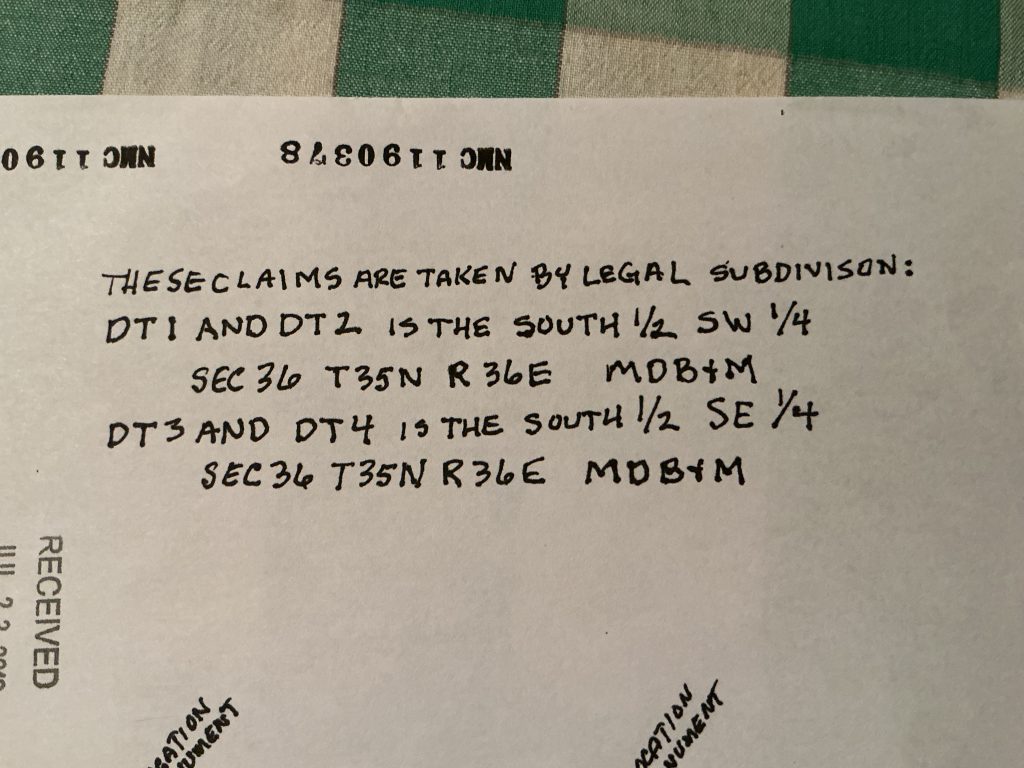 NMC 1190
NMC 1190378
THESE CLAIMS ARE TAKEN BY LEGAL SUBDIVISON:
DT1 AND DT2 IS THE SOUTH 1/2 SW 1/4
SEC 36 T35N R 36E MDB&M
DT3 AND DT4 IS THE SOUTH 1/2 SE 1/4
SEC 36 T35N R 36E MDB&M
RECEIVED